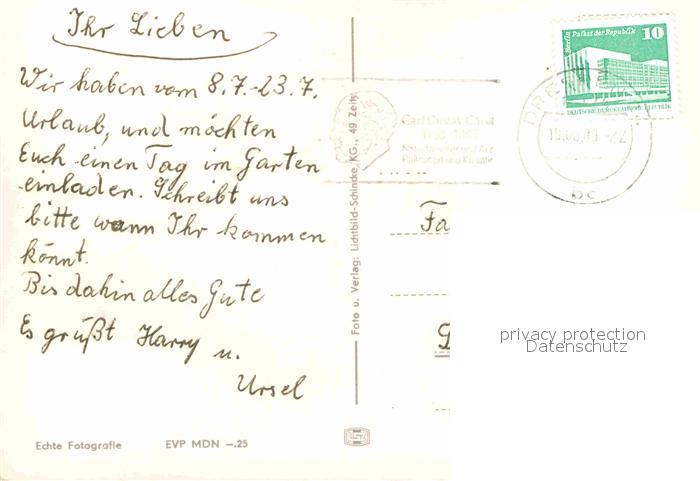 Ihr Lieben
Wir haben vom 8.7.-23.7.
Urlaub, und möchten
Euch einen Tag im Garten
einladen. Schreibt uns
bitte wann Ihr kommen
könnt.
Bis dahin alles Gute
Es grüßt Harry u.
Ursel
Echte Fotografie EVP MDN -.25
Foto u. Verlag: Lichtbild-Schincke, KG., 49 Zeitz
Carl Gustav Carus
Berlin Palast der Republik 10
DEUTSCHE DEMOKRATISCHE REPUBLIK
DRESDEN
bc
Fa
privacy protection
Datenschutz